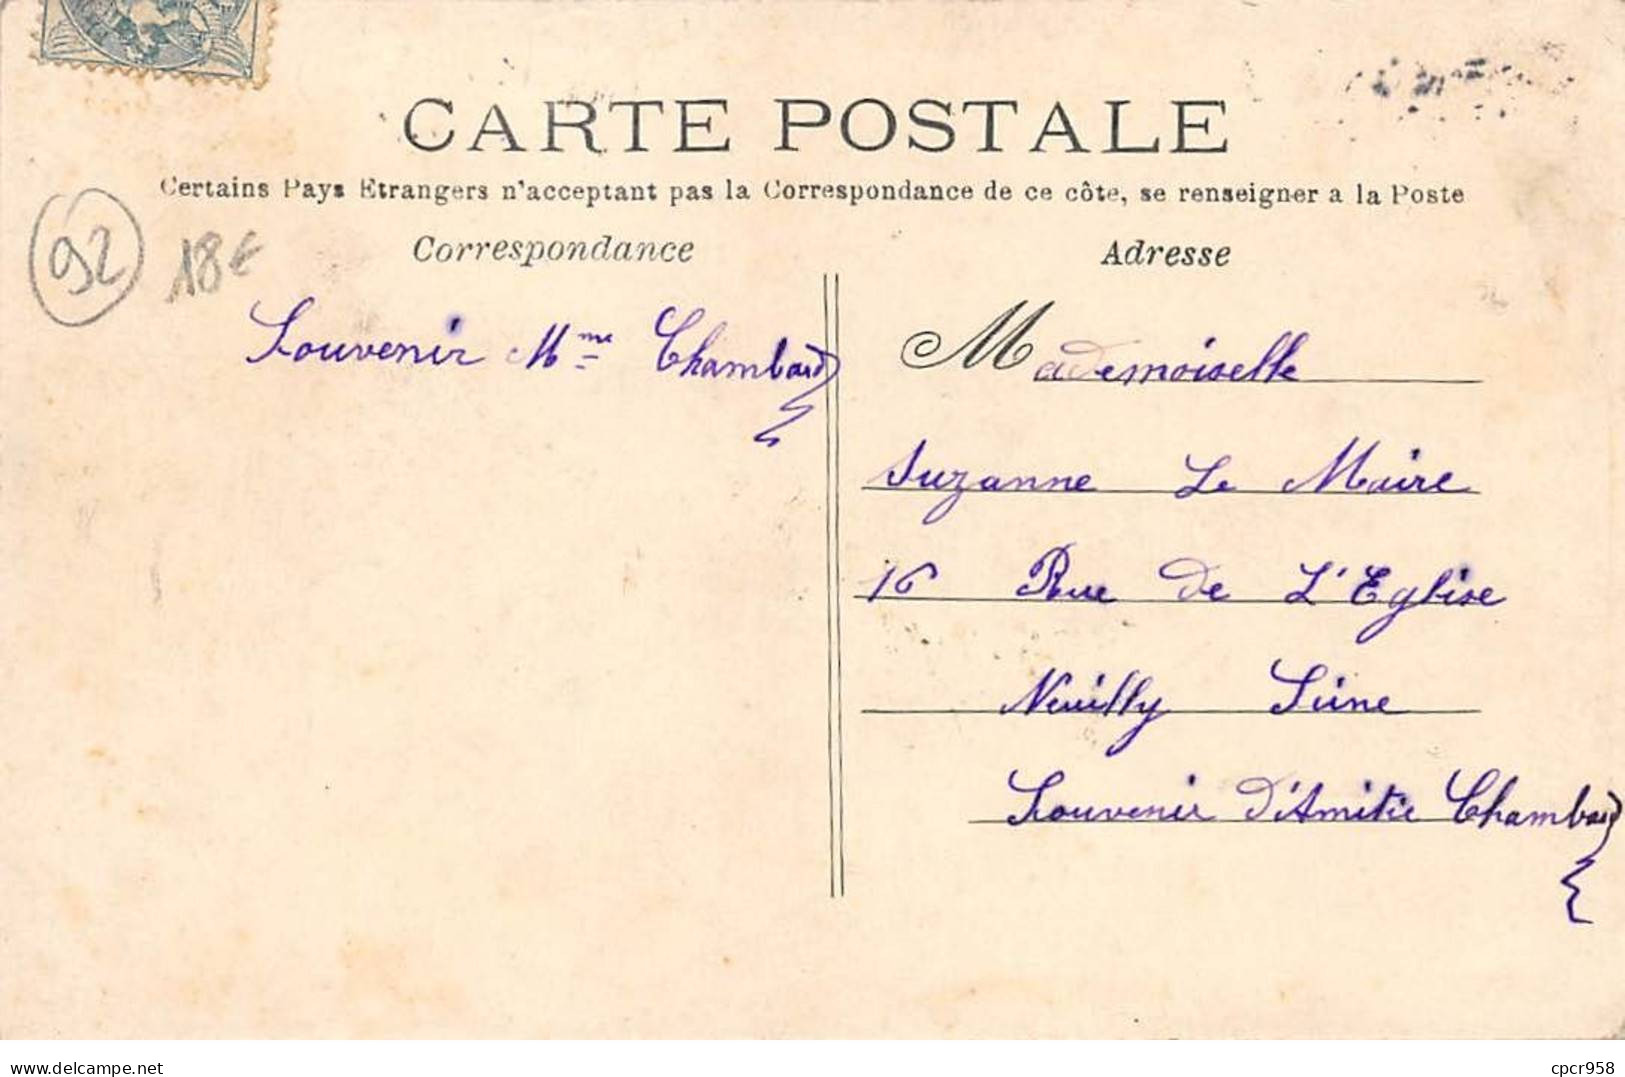 CARTE POSTALE
Certains Pays Etrangers n'acceptant pas la Correspondance de ce côte, se renseigner a la Poste
92
18€
Correspondance
Souvenir Mme Chambard
Adresse
Mademoiselle
Suzanne Le Maire
16 Rue De L'Eglise
Neuilly Seine
Souvenir D'Amitie Chambard
delcampe.net
cpcr958